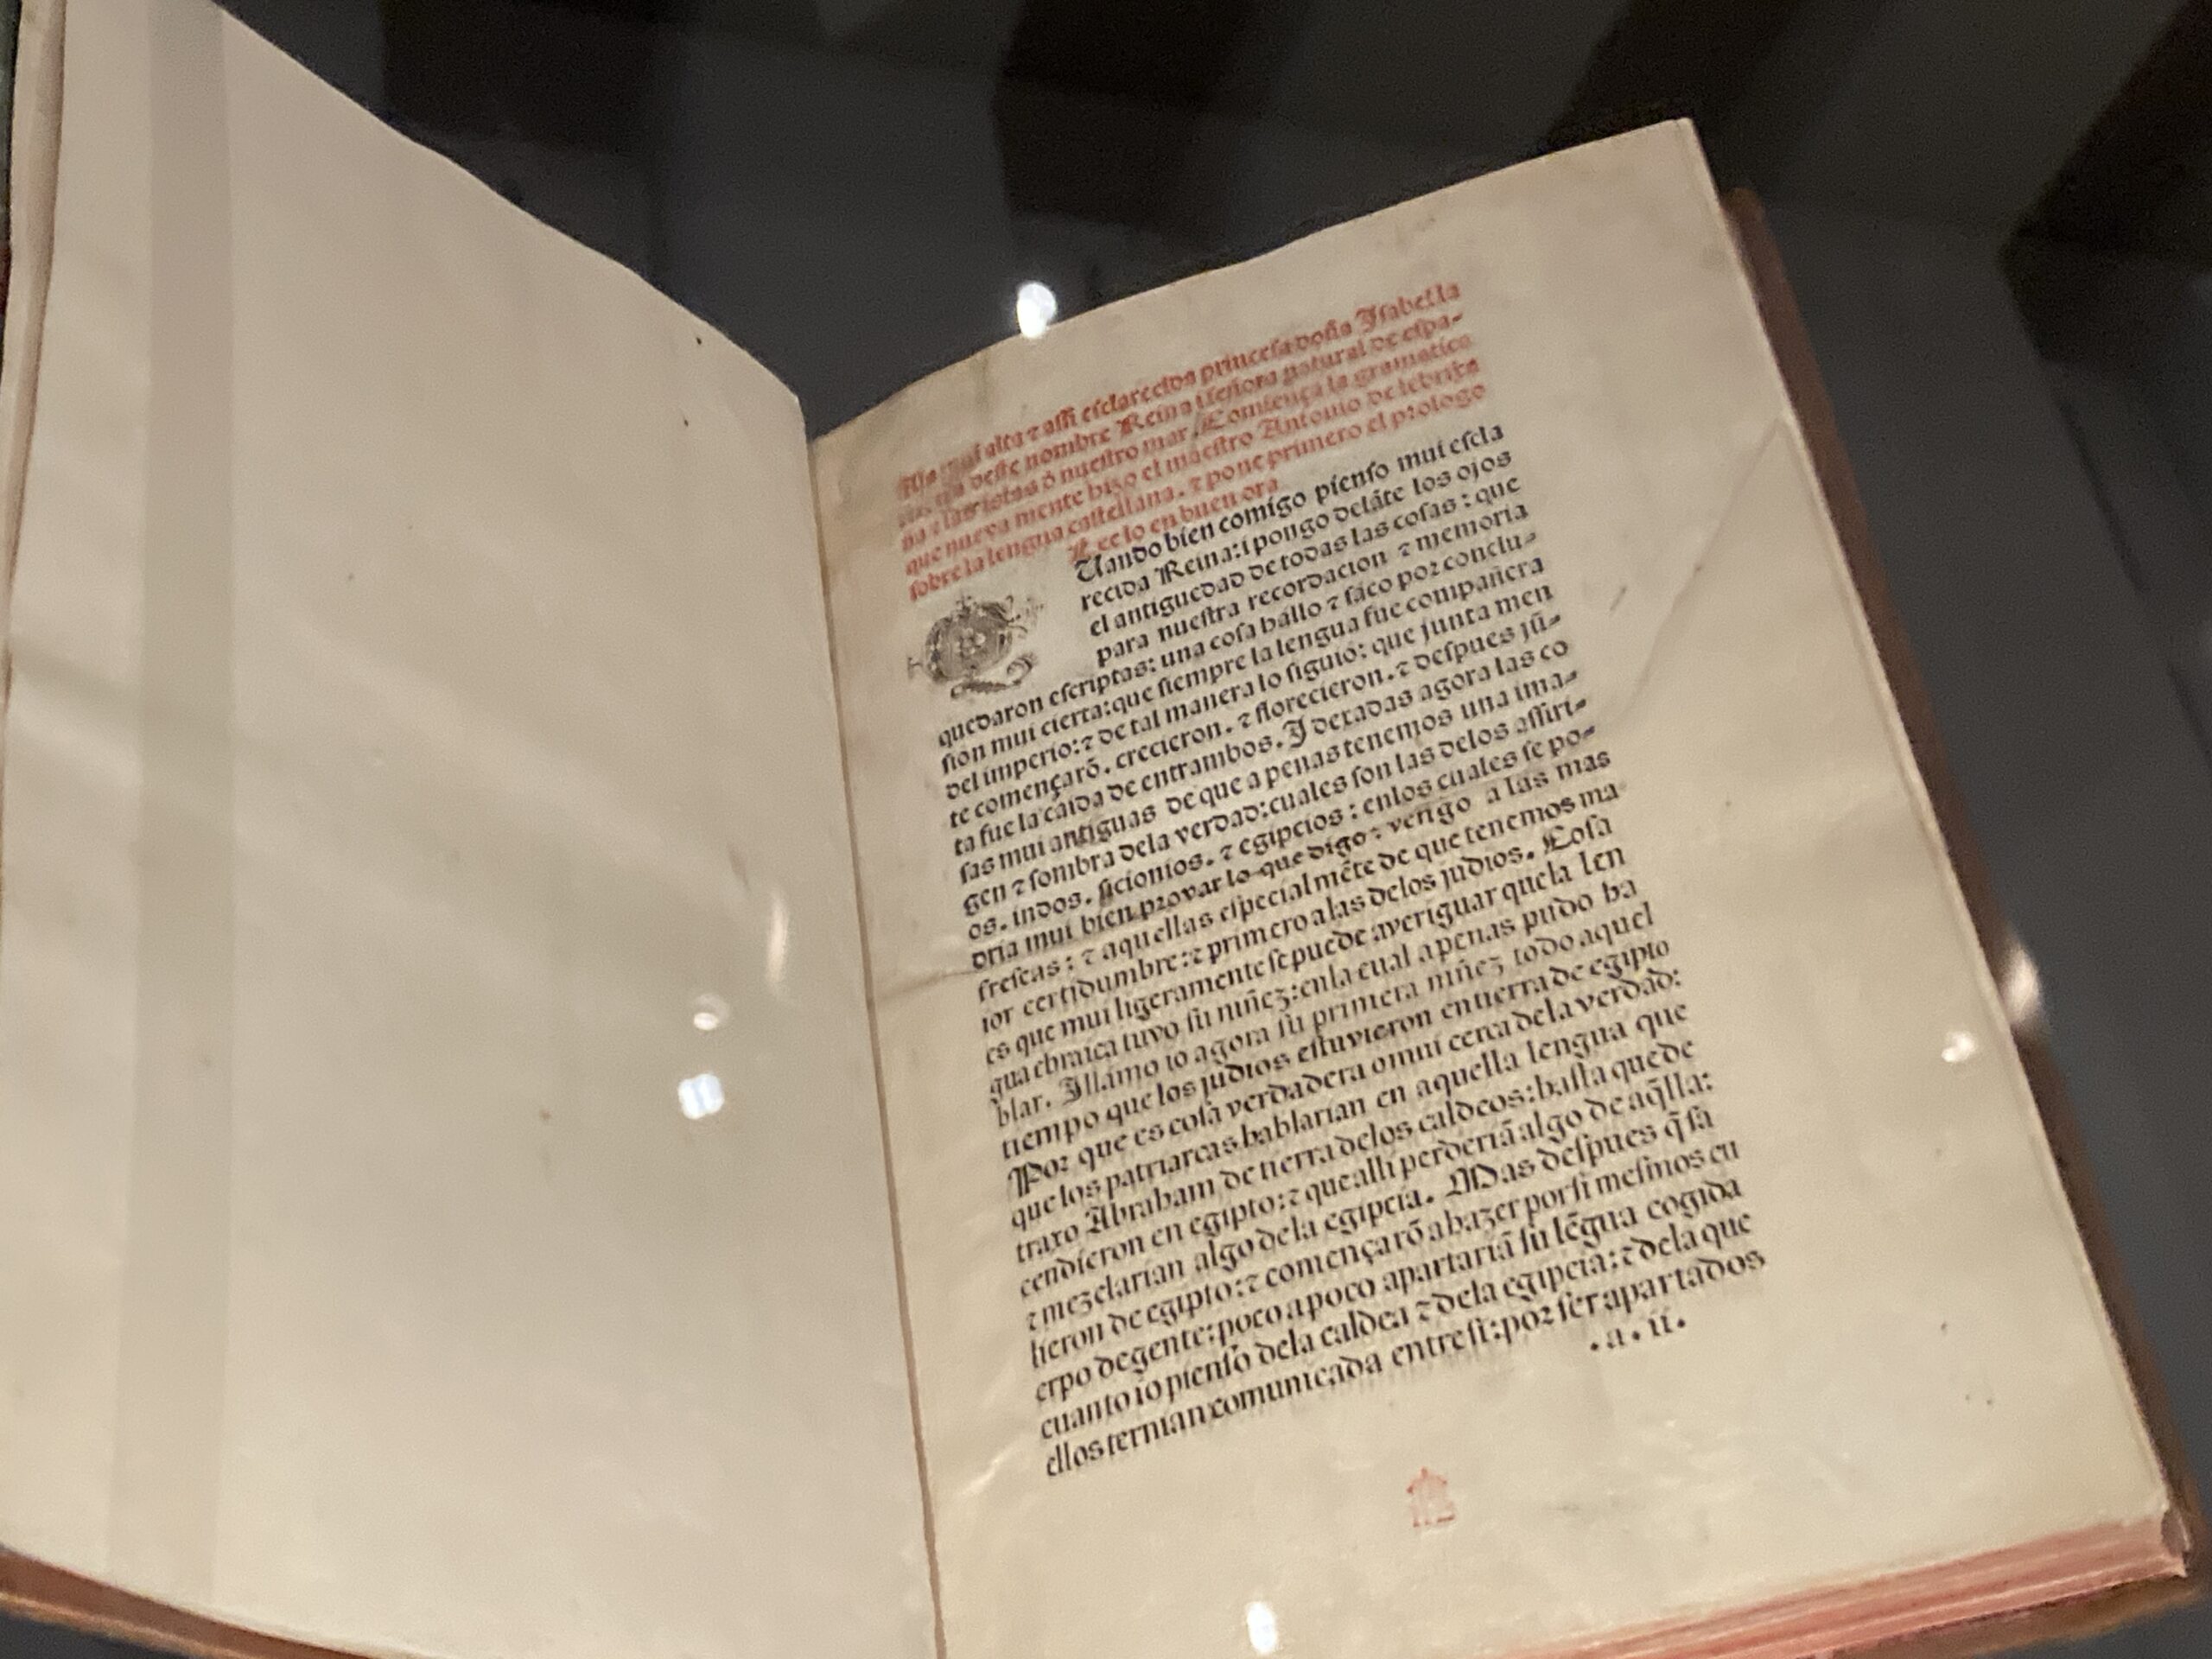 A la mui alta ⁊ assi esclarecida princesa doña Isabella
la tercera deste nombre Reina i señora natural de espa-
ña ⁊ las islas ð nuestro mar. Comiença la gramatica
que nueva mente hizo el maestro Antonio de lebrixa
sobre la lengua castellana. ⁊ pone primero el prologo
Lee lo en buen ora
QUando bien comigo pienso mui escla
recida Reina: i pongo delãte los ojos
el antiguedad de todas las cosas: que
para nuestra recordacion ⁊ memoria
quedaron escriptas: una cosa hállo ⁊ sáco por conclu-
sion mui cierta: que siempre la lengua fue compañera
del imperio: ⁊ de tal manera lo siguió: que junta men
te començarõ. crecieron. ⁊ florecieron. ⁊ despues jũ-
ta fue la caida de entrambos. I dexadas agora las co
sas mui antiguas de que a penas tenemos una ima-
gen ⁊ sombra dela verdad: cuales son las delos assiri-
os. indos. sicionios. ⁊ egipcios: enlos cuales se po-
dria mui bien provar lo que digo: vengo a las mas
frescas: ⁊ aquellas especial mẽte de que tenemos ma
ior certidumbre: ⁊ primero a las delos judios. Cosa
es que mui ligeramente se puede averiguar quela len
gua ebraica tuvo su niñez: enla cual a penas pudo ha
blar. I llámo io agora su primera niñez todo aquel
tiempo que los judios estuvieron en tierra de egipto
Por que es cosa verdadera o mui cerca dela verdad:
que los patriarcas hablarian en aquella lengua que
traxo Abraham de tierra delos caldeos: hasta que de
cendieron en egipto: ⁊ que alli perderiã algo de aq̃lla:
⁊ mezclarian algo dela egipcia. Mas despues q̃ sa
lieron de egipto: ⁊ començarõ a hazer por si mesmos cu
erpo de gente: poco a poco apartariã su lẽgua cogida
cuanto io pienso dela caldea ⁊ dela egipcia: ⁊ dela que
ellos ternian comunicada entre si: por ser apartados
.a.ii.